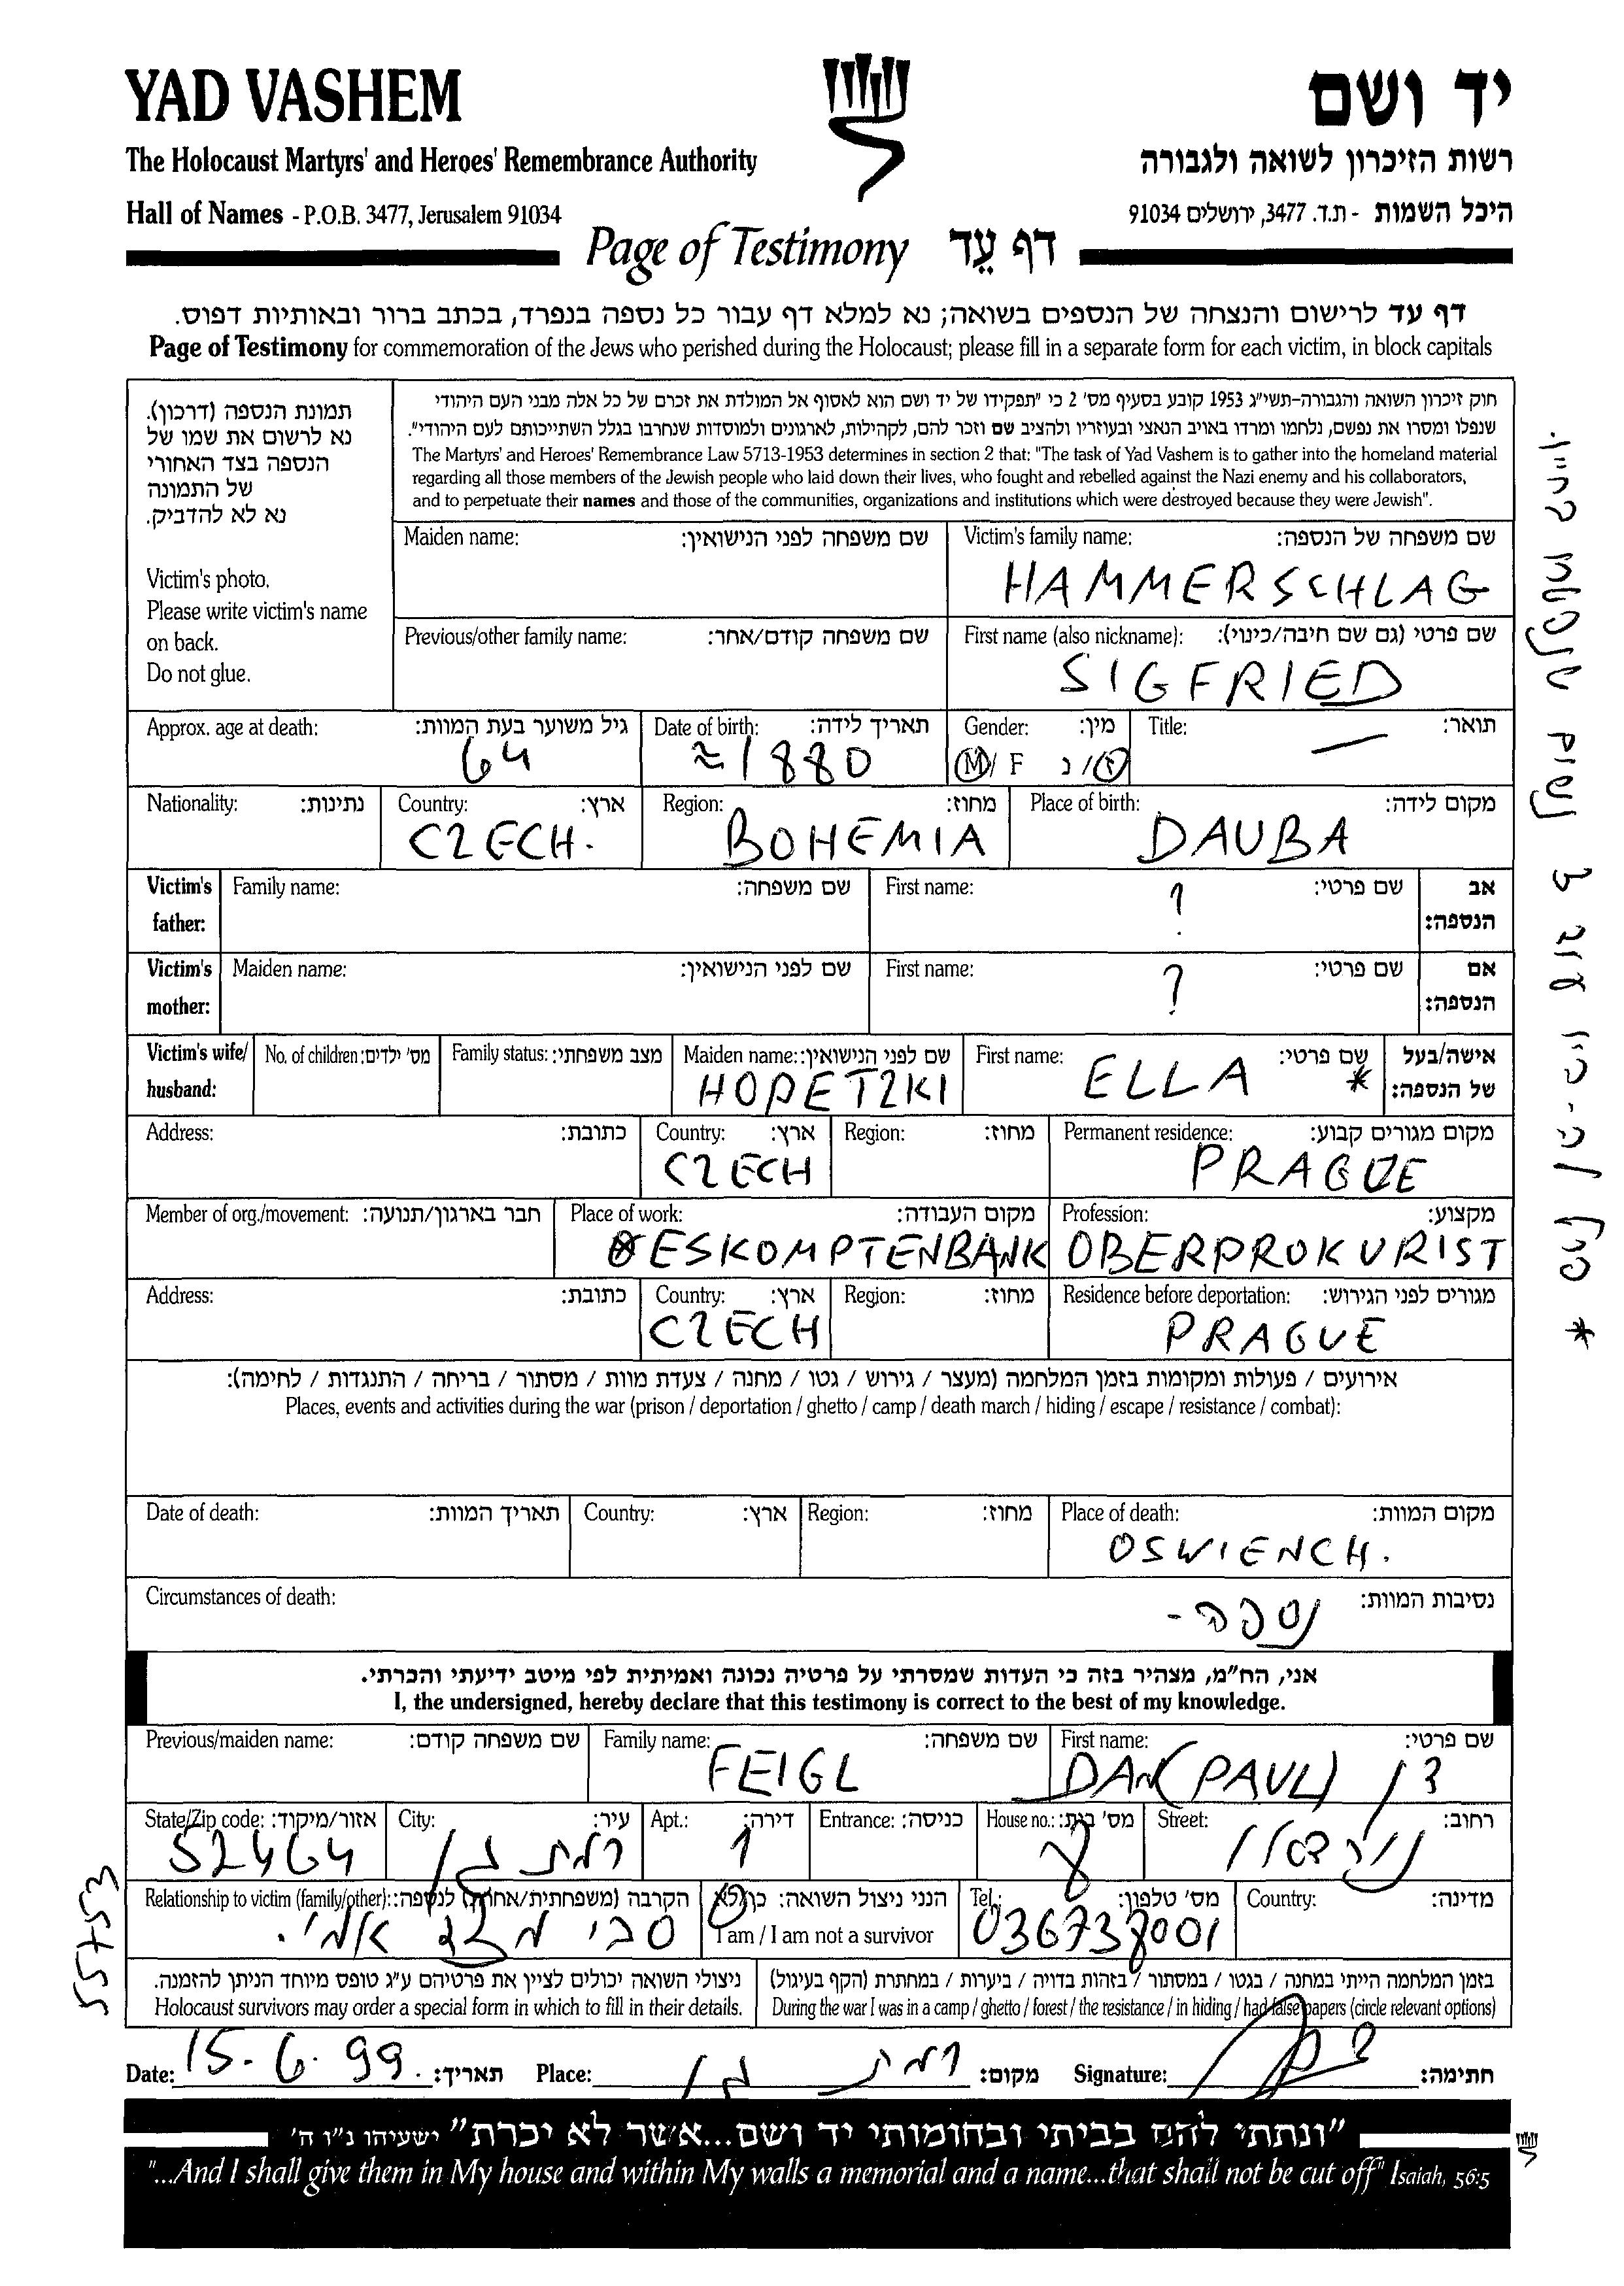 YAD VASHEM
יד ושם
The Holocaust Martyrs' and Heroes' Remembrance Authority
רשות הזיכרון לשואה ולגבורה
Hall of Names - P.O.B. 3477, Jerusalem 91034
היכל השמות - ת.ד. 3477, ירושלים 91034
Page of Testimony דף עֵד
דף עד לרישום והנצחה של הנספים בשואה; נא למלא דף עבור כל נספה בנפרד, בכתב ברור ובאותיות דפוס.
Page of Testimony for commemoration of the Jews who perished during the Holocaust; please fill in a separate form for each victim, in block capitals
תמונת הנספה (דרכון).
נא לרשום את שמו של
הנספה בצד האחורי
של התמונה
נא לא להדביק.
Victim's photo.
Please write victim's name
on back.
Do not glue.
חוק זיכרון השואה והגבורה-תשי"ג 1953 קובע בסעיף מס' 2 כי "תפקידו של יד ושם הוא לאסוף אל המולדת את זכרם של כל אלה מבני העם היהודי
שנפלו ומסרו את נפשם, נלחמו ומרדו באויב הנאצי ובעוזריו ולהציב שם וזכר להם, לקהילות, לארגונים ולמוסדות שנחרבו בגלל השתייכותם לעם היהודי".
The Martyrs' and Heroes' Remembrance Law 5713-1953 determines in section 2 that: "The task of Yad Vashem is to gather into the homeland material
regarding all those members of the Jewish people who laid down their lives, who fought and rebelled against the Nazi enemy and his collaborators,
and to perpetuate their names and those of the communities, organizations and institutions which were destroyed because they were Jewish".
Maiden name: שם משפחה לפני הנישואין: Victim's family name: שם משפחה של הנספה:
HAMMERSCHLAG
Previous/other family name: שם משפחה קודם/אחר: First name (also nickname): שם פרטי (גם שם חיבה/כינוי):
SIGFRIED
Approx. age at death: גיל משוער בעת המוות: Date of birth: תאריך לידה: Gender: מין: Title: תואר:
64 ≈1880 M / F ז / נ —
Nationality: נתינות: Country: ארץ: Region: מחוז: Place of birth: מקום לידה:
CZECH. BOHEMIA DAUBA
Victim's father: Family name: שם משפחה: First name: שם פרטי: אב הנספה:
?
Victim's mother: Maiden name: שם לפני הנישואין: First name: שם פרטי: אם הנספה:
?
Victim's wife/husband: No. of children: מס' ילדים: Family status: מצב משפחתי: Maiden name: שם לפני הנישואין: First name: שם פרטי: אישה/בעל של הנספה:
HOPETZKI ELLA *
Address: כתובת: Country: ארץ: Region: מחוז: Permanent residence: מקום מגורים קבוע:
CZECH PRAGUE
Member of org./movement: חבר בארגון/תנועה: Place of work: מקום העבודה: Profession: מקצוע:
ESKOMPTENBANK OBERPROKURIST
Address: כתובת: Country: ארץ: Region: מחוז: Residence before deportation: מגורים לפני הגירוש:
CZECH PRAGUE
אירועים / פעולות ומקומות בזמן המלחמה (מעצר / גירוש / גטו / מחנה / צעדת מוות / מסתור / בריחה / התנגדות / לחימה):
Places, events and activities during the war (prison / deportation / ghetto / camp / death march / hiding / escape / resistance / combat):
Date of death: תאריך המוות: Country: ארץ: Region: מחוז: Place of death: מקום המוות:
OSWIENCH.
Circumstances of death: נסיבות המוות:
נספה -
אני, הח"מ, מצהיר בזה כי העדות שמסרתי על פרטיה נכונה ואמיתית לפי מיטב ידיעתי והכרתי.
I, the undersigned, hereby declare that this testimony is correct to the best of my knowledge.
Previous/maiden name: שם משפחה קודם: Family name: שם משפחה: First name: שם פרטי:
FEIGL DAN (PAUL) דן
State/Zip code: אזור/מיקוד: City: עיר: Apt.: דירה: Entrance: כניסה: House no.: מס' בית: Street: רחוב:
52464 רמת גן 1 8
Relationship to victim (family/other): הקרבה (משפחתית/אחרת) לנספה: הנני ניצול השואה: כן/לא Tel.: מס' טלפון: Country: מדינה:
סבי מצד אמי. I am / I am not a survivor 036738001
55753
ניצולי השואה יכולים לציין את פרטיהם ע"ג טופס מיוחד הניתן להזמנה.
Holocaust survivors may order a special form in which to fill in their details.
בזמן המלחמה הייתי במחנה / בגטו / במסתור / בזהות בדויה / ביערות / במחתרת (הקף בעיגול)
During the war I was in a camp / ghetto / forest / the resistance / in hiding / had false papers (circle relevant options)
Date: 15.6.99 תאריך: Place: רמת גן מקום: Signature: חתימה:
"ונתתי להם בביתי ובחומותי יד ושם...אשר לא יכרת" ישעיהו נ"ו ה'
"...And I shall give them in My house and within My walls a memorial and a name...that shall not be cut off" Isaiah, 56:5